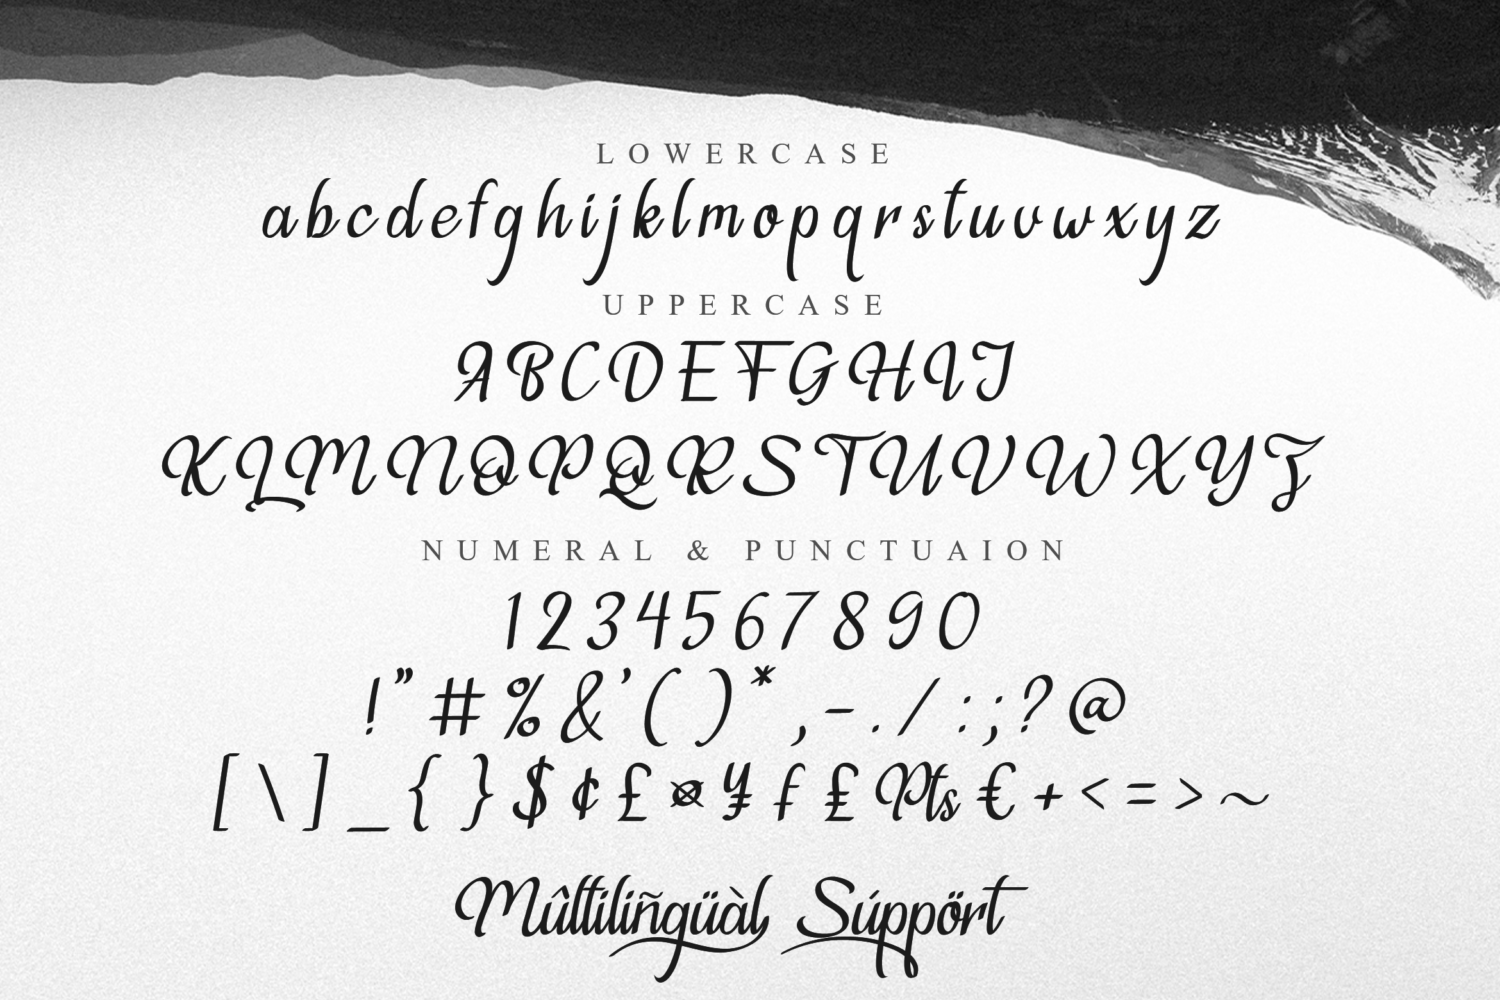 LOWERCASE
abcdefghijklmopqrstuvwxyz
UPPERCASE
ABCDEFGHIJ
KLMNOPQRSTUVWXYZ
NUMERAL & PUNCTUAION
1234567890
!"#%&'()*,-./:;?@
[\]_{}$¢£¤¥ƒ₤₧€+<=>~
Mûltiliñgüàl Súppört